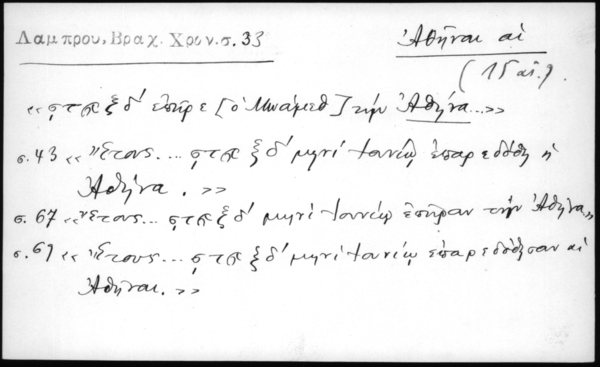 Λαμπρου, Βραχ. Χρον. σ. 33
Ἀθῆναι αἱ
(15 αἰ.).
«ϛτλξδ' ἐπῆρε [ὁ Μωάμεθ] τὴν Ἀθήνα...»
σ. 43 «Ἔτους... ϛτλξδ' μηνὶ Ἰουνίῳ ἐπαρεδόθη ἡ
Ἀθήνα.»
σ. 67 «Ἔτους... ϛτλξδ' μηνὶ Ἰουνίῳ ἐπῆραν τὴν Ἀθήνα»
σ. 69 «Ἔτους... ϛτλξδ' μηνὶ Ἰουνίῳ ἐπαρεδόθησαν αἱ
Ἀθῆναι.»